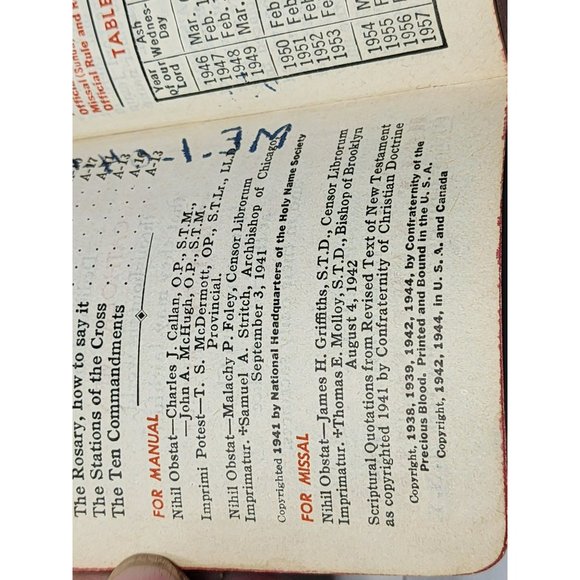 The Rosary, how to say it
The Stations of the Cross
The Ten Commandments
FOR MANUAL
Nihil Obstat—Charles J. Callan, O.P., S.T.M.
—John A. McHugh, O.P., S.T.M.
Imprimi Potest—T. S. McDermott, OP., S.T.Lr., LL.D.
Provincial.
Nihil Obstat—Malachy P. Foley, Censor Librorum
Imprimatur. ✠Samuel A. Stritch, Archbishop of Chicago
September 3, 1941
Copyrighted 1941 by National Headquarters of the Holy Name Society
FOR MISSAL
Nihil Obstat—James H. Griffiths, S.T.D., Censor Librorum
Imprimatur. ✠Thomas E. Molloy, S.T.D., Bishop of Brooklyn
August 4, 1942
Scriptural Quotations from Revised Text of New Testament
as copyrighted 1941 by Confraternity of Christian Doctrine
Copyright, 1938, 1939, 1942, 1944, by Confraternity of the
Precious Blood. Printed and Bound in the U. S. A.
Copyright, 1942, 1944, in U. S. A. and Canada
Official
Missal Rule and
Official Rule and
TABLE
Year Ash
of our Wednes-
Lord Day
1946 Mar.
1947 Feb.
1948 Feb.
1949 Mar.
1950 Feb.
1951 Feb.
1952 Feb.
1953 Feb.
1954
1955
1956
1957